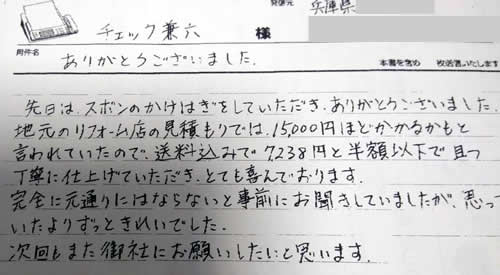 発信元 兵庫県
チェック兼六 様
用件名
ありがとうございました。
本書を含め 枚送信いたします
先日は、スボンのかけはぎをしていただき、ありがとうございました
地元のリフォーム店の見積もりでは、15,000円ほどかかるかもと
言われていたので、送料込みで7,238円と半額以下で且つ
丁寧に仕上げていただき、とても喜んでおります。
完全に元通りにはならないと事前にお聞きしていましたが、思って
いたよりずっときれいでした。
次回もまた御社にお願いしたいと思います。